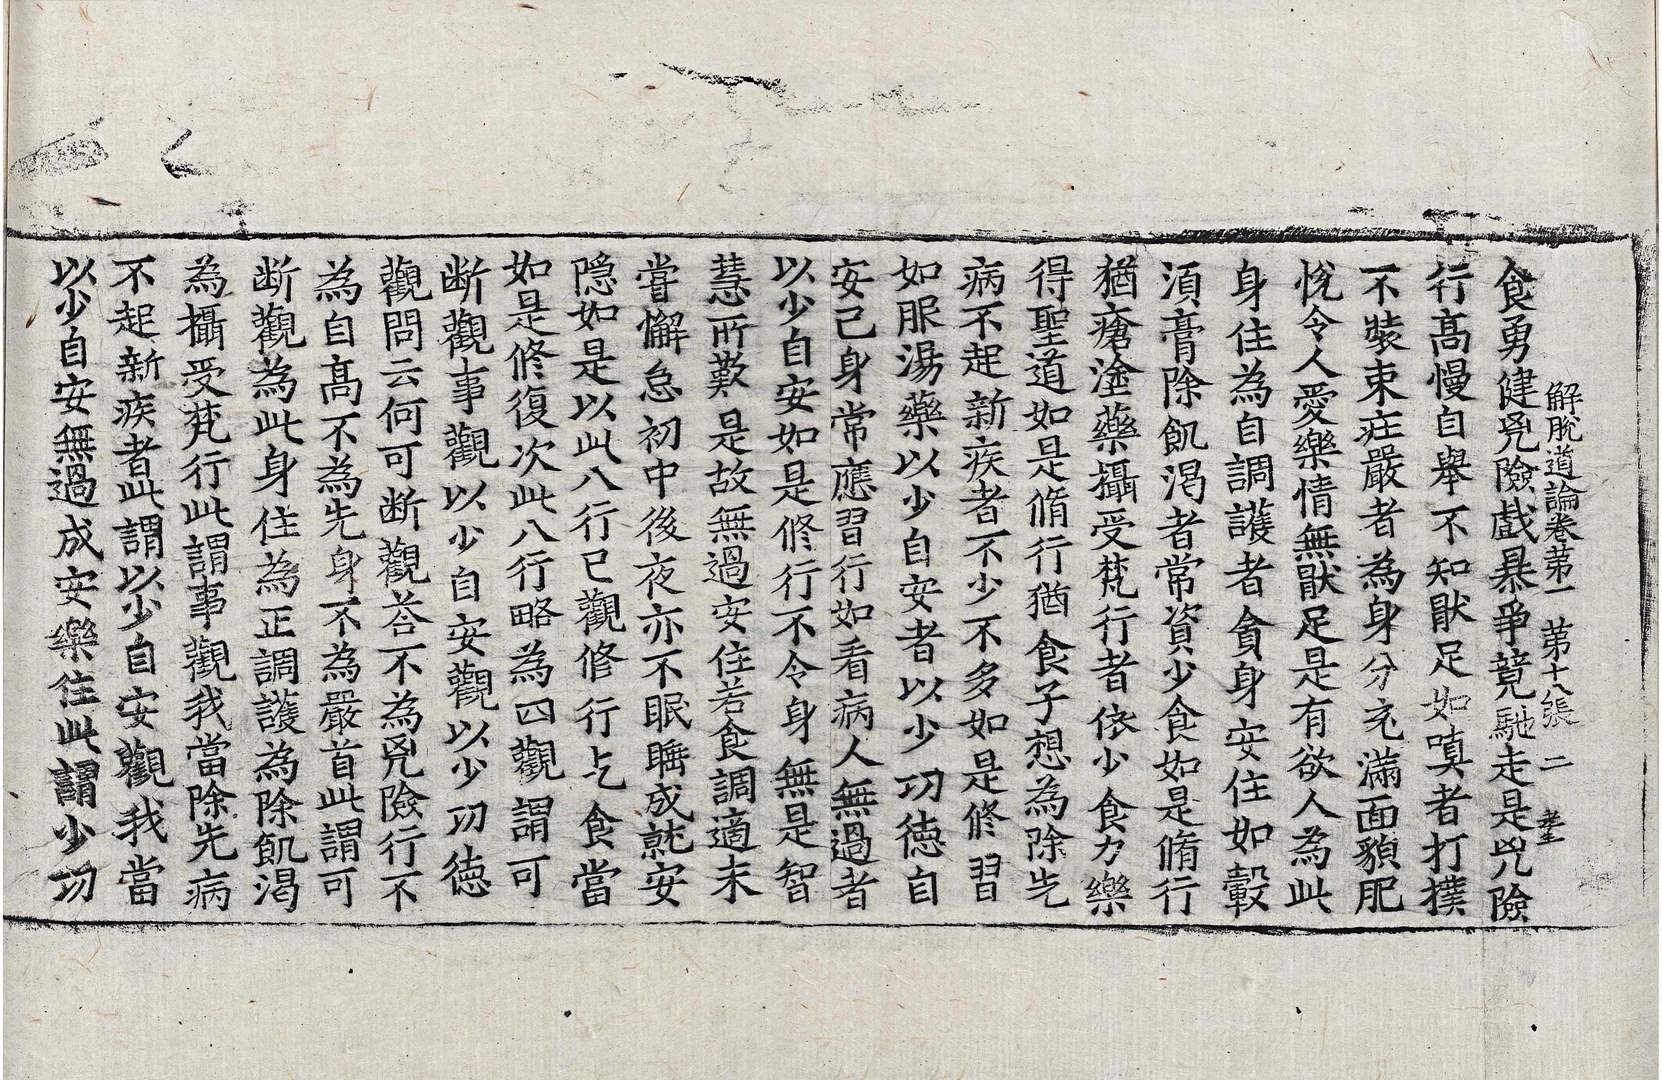 解脫道論卷第一　第十八張　二
食勇健兇險戲暴爭競馳走是兇險
行髙慢自舉不知猒足如嗔者打撲
不裝束莊嚴者為身分充滿面貌肥
悅令人愛樂情無猒足是有欲人為此
身住為自調護者貪身安住如轂
須膏除飢渴者常資少食如是脩行
猶瘡塗藥攝受梵行者依少食力樂
得聖道如是脩行猶食子想為除先
病不起新疾者不少不多如是修習
如服湯藥以少自安者以少功德自
安己身常應習行如看病人無過者
以少自安如是修行不令身無是智
慧所歎是故無過安住若食調適未
甞懈怠初中後夜亦不眠睡成就安
隱如是以此八行已觀修行乞食當
如是修復次此八行略為四觀謂可
断觀事觀以少自安觀以少功徳
觀問云何可断觀荅不為兇險行不
為自髙不為先身不為嚴首此謂可
断觀為此身住為正調護為除飢渴
為攝受梵行此謂事觀我當除先病
不起新疾者此謂以少自安觀我當
以少自安無過成安樂住此謂少功